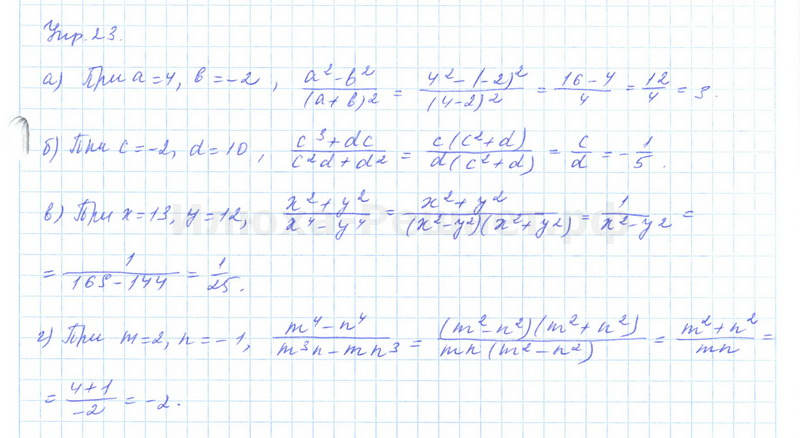 Упр. 23.
а) При a=4, b=-2, (a²-b²)/(a+b)² = (4²-(-2)²)/(4-2)² = (16-4)/4 = 12/4 = 3.
б) При c=-2, d=10, (c³+dc)/(c²d+d²) = c(c²+d)/d(c²+d) = c/d = -1/5.
в) При x=13, y=12, (x²+y²)/(x⁴-y⁴) = (x²+y²)/(x²-y²)(x²+y²) = 1/(x²-y²) =
= 1/(169-144) = 1/25.
г) При m=2, n=-1, (m⁴-n⁴)/(m³n-mn³) = (m²-n²)(m²+n²)/mn(m²-n²) = (m²+n²)/mn =
= (4+1)/-2 = -2.